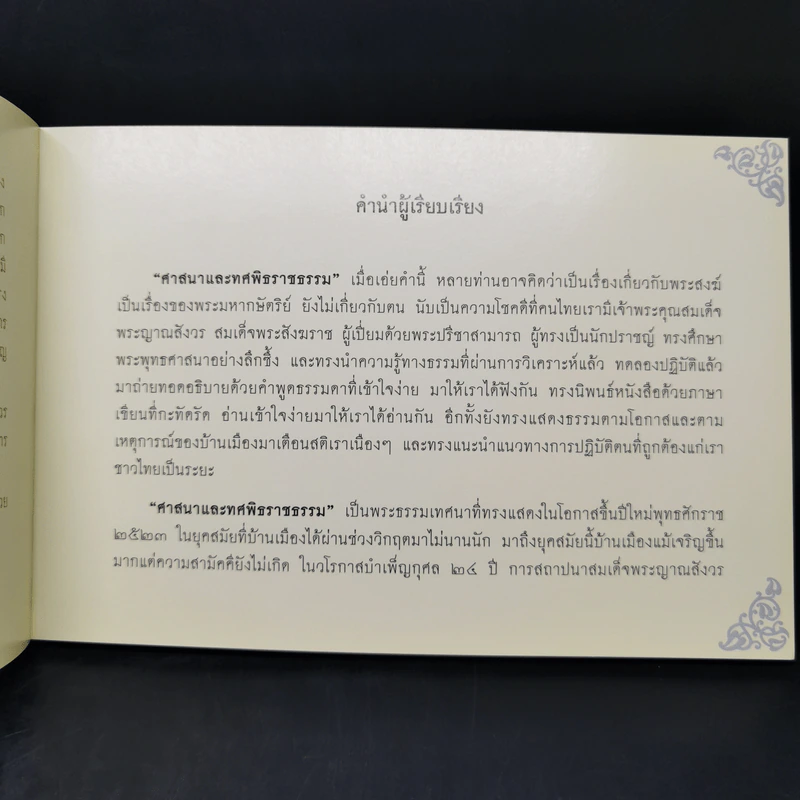 คำนำผู้เรียบเรียง
“ศาสนาและทศพิธราชธรรม” เมื่อเอ่ยคำนี้ หลายท่านอาจคิดว่าเป็นเรื่องเกี่ยวกับพระสงฆ์
เป็นเรื่องของพระมหากษัตริย์ ยังไม่เกี่ยวกับตน นับเป็นความโชคดีที่คนไทยเรามีเจ้าพระคุณสมเด็จ
พระญาณสังวร สมเด็จพระสังฆราช ผู้เปี่ยมด้วยพระปรีชาสามารถ ผู้ทรงเป็นนักปราชญ์ ทรงศึกษา
พระพุทธศาสนาอย่างลึกซึ้ง และทรงนำความรู้ทางธรรมที่ผ่านการวิเคราะห์แล้ว ทดลองปฏิบัติแล้ว
มาถ่ายทอดอธิบายด้วยคำพูดธรรมดาที่เข้าใจง่าย มาให้เราได้ฟังกัน ทรงนิพนธ์หนังสือด้วยภาษา
เขียนที่กะทัดรัด อ่านเข้าใจง่ายมาให้เราได้อ่านกัน อีกทั้งยังทรงแสดงธรรมตามโอกาสและตาม
เหตุการณ์ของบ้านเมืองมาเตือนสติเราเนืองๆ และทรงแนะนำแนวทางการปฏิบัติตนที่ถูกต้องแก่เรา
ชาวไทยเป็นระยะ
“ศาสนาและทศพิธราชธรรม” เป็นพระธรรมเทศนาที่ทรงแสดงในโอกาสขึ้นปีใหม่พุทธศักราช
๒๕๒๓ ในยุคสมัยที่บ้านเมืองได้ผ่านช่วงวิกฤตมาไม่นานนัก มาถึงยุคสมัยนี้บ้านเมืองแม้เจริญขึ้น
มากแต่ความสามัคคียังไม่เกิด ในวโรกาสบำเพ็ญกุศล ๒๔ ปี การสถาปนาสมเด็จพระญาณสังวร